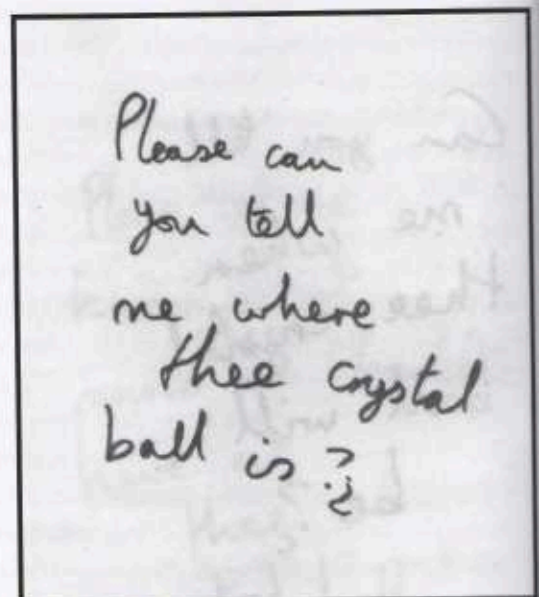 Please can
you tell
me where
thee crystal
ball is?